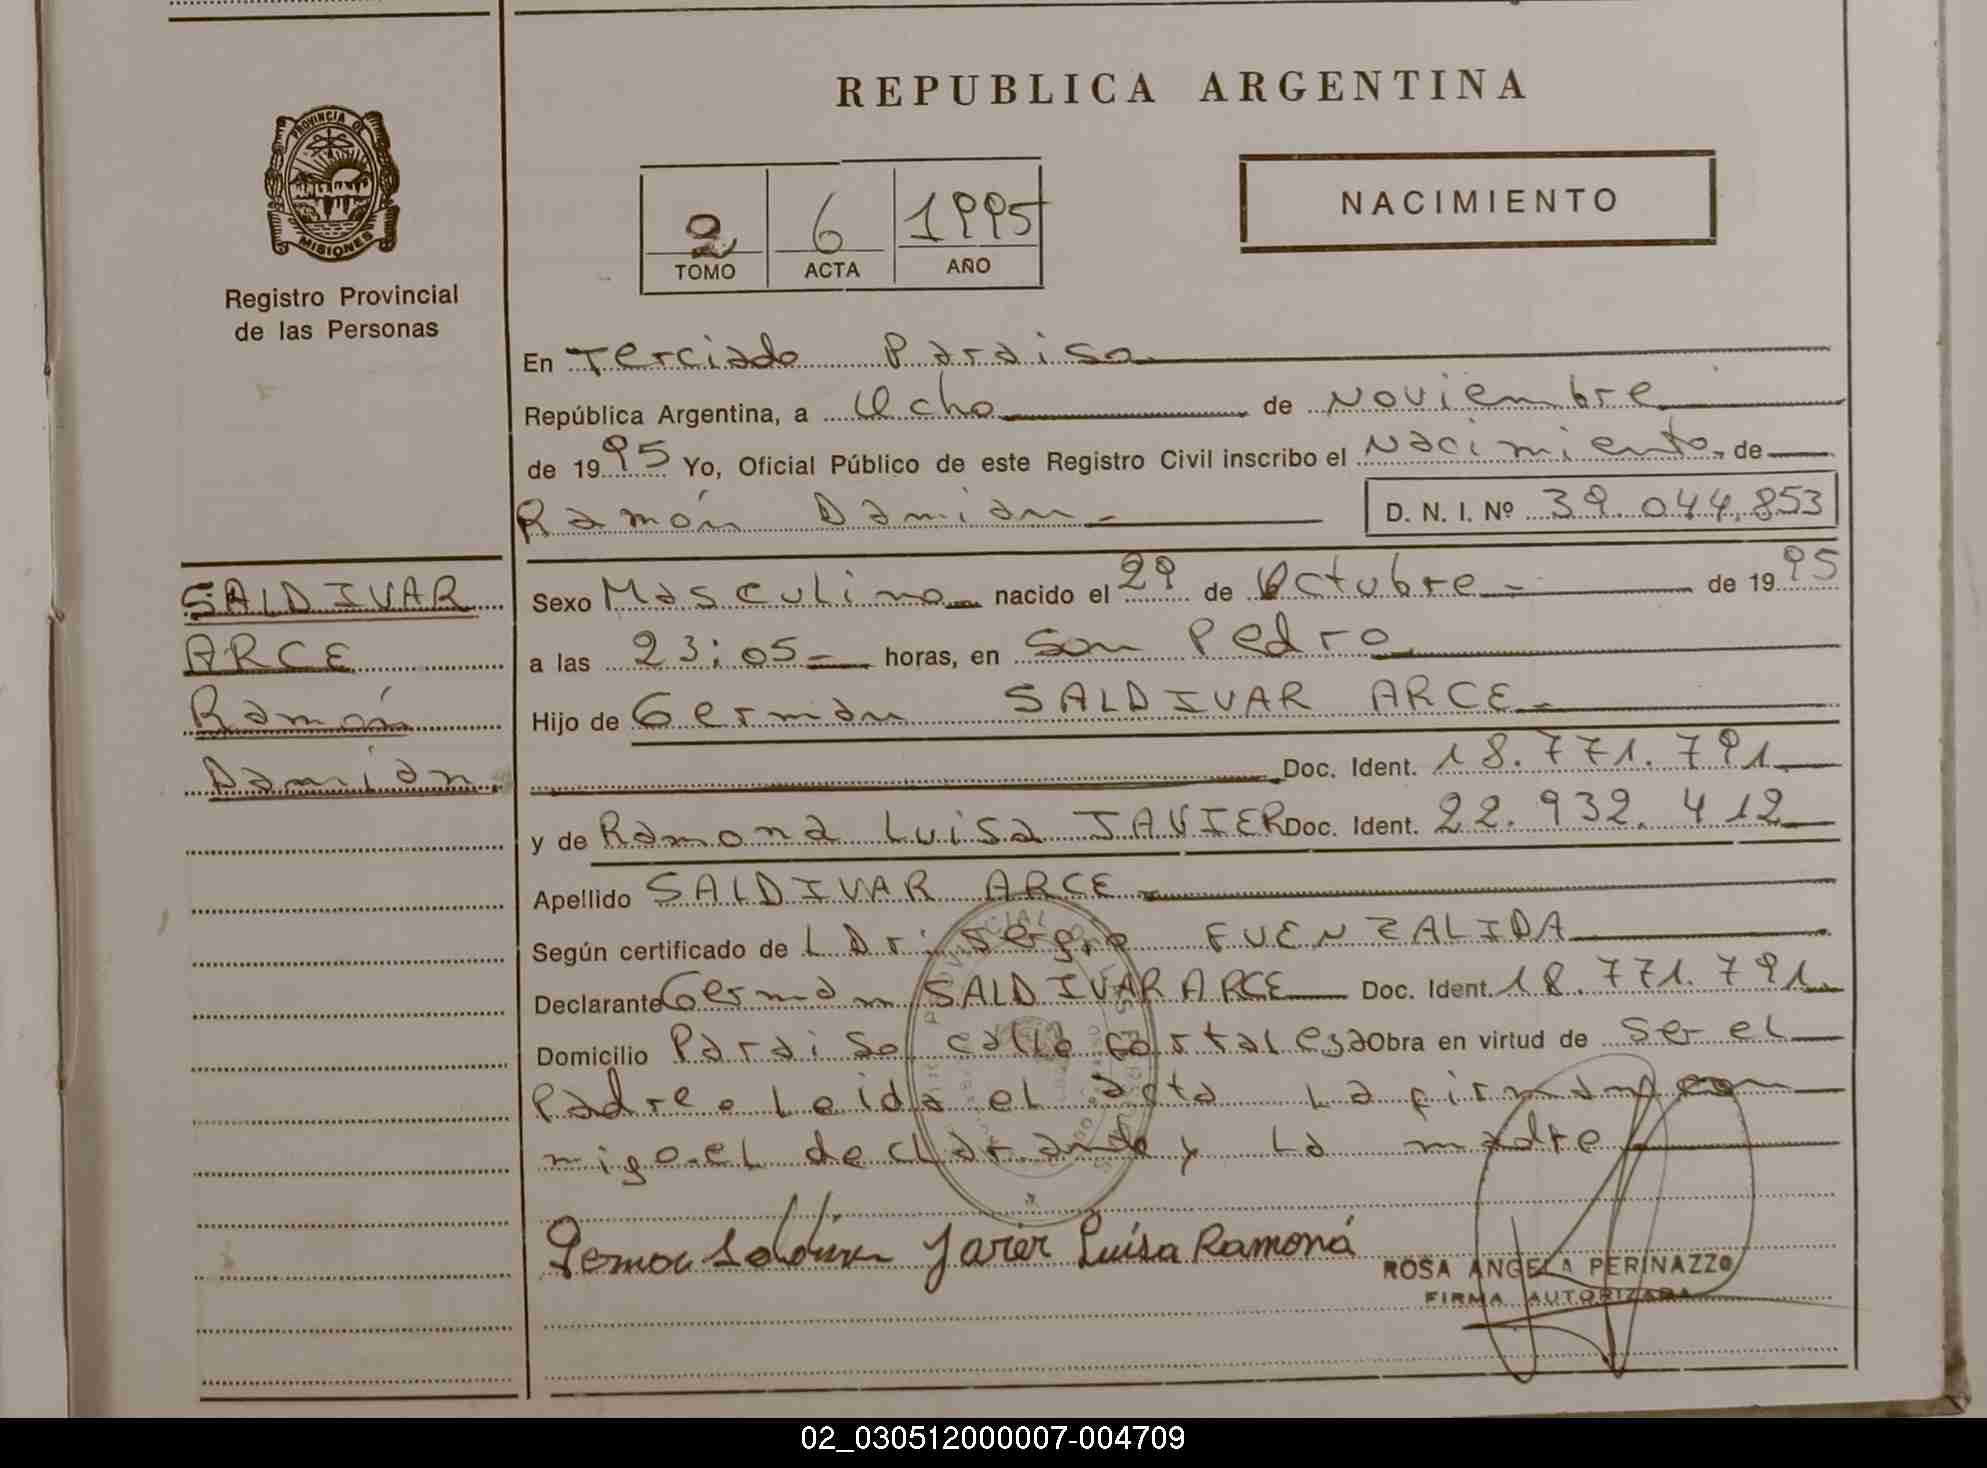 REPUBLICA ARGENTINA
PROVINCIA DE
MISIONES
Registro Provincial
de las Personas
2 6 1995
TOMO ACTA AÑO
NACIMIENTO
En Terciado Paraiso
República Argentina, a Ocho de Noviembre
de 1995 Yo, Oficial Público de este Registro Civil inscribo el Nacimiento, de
Ramón Damian
D. N. I. Nº 39.044.853
SALDIVAR
ARCE
Ramón
Damian.
Sexo Masculino nacido el 29 de Octubre de 1995
a las 23:05 horas, en San Pedro
Hijo de German SALDIVAR ARCE
Doc. Ident. 18.771.791
y de Ramona Luisa JAVIER Doc. Ident. 22.932.412
Apellido SALDIVAR ARCE
Según certificado de L Dr. Sergio FUENZALIDA
Declarante German SALDIVAR ARCE Doc. Ident. 18.771.791
Domicilio Paraiso calle Fortalesa Obra en virtud de Ser el
Padre. Leida el acta la firman con
migo el declarante y la madre
Saldivar Javier Luisa Ramona
ROSA ANGELA PERINAZZO
FIRMA AUTORIZADA
02_030512000007-004709